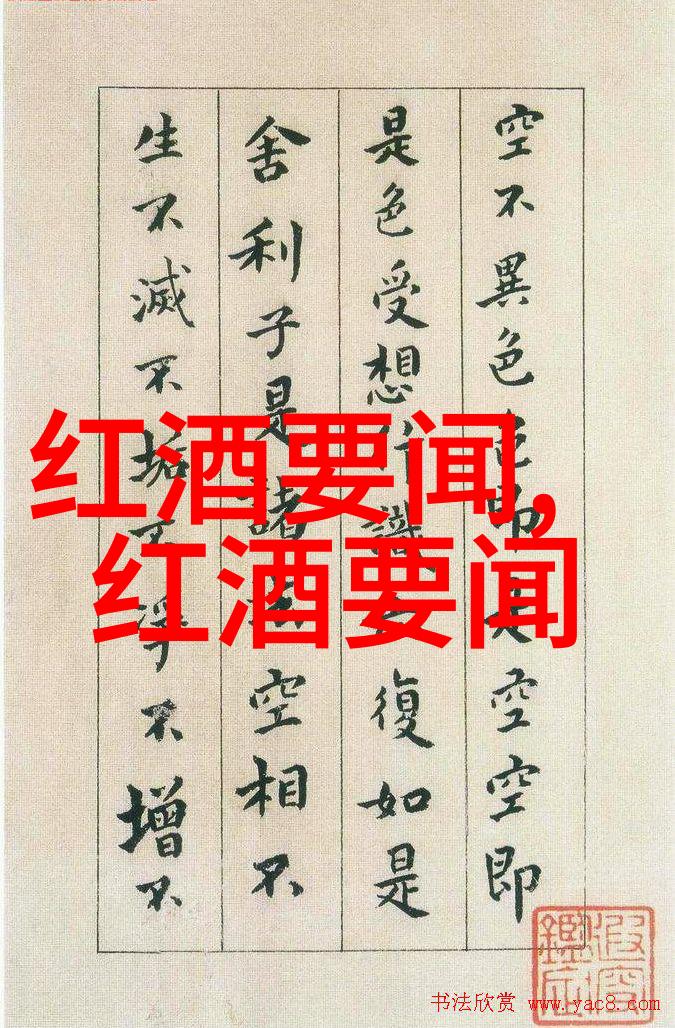 空不異色色即是空空即
是色受想行識亦復如是
舍利子是諸法空相不
生不滅不垢不淨不增不
红酒要闻,
红酒要闻
书法欣赏 www.yac8.com